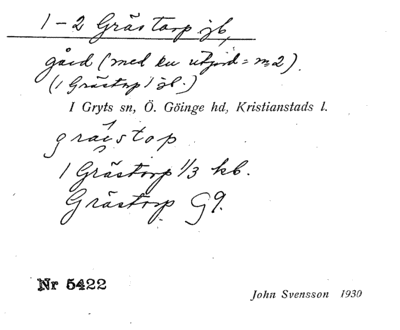 1-2 Gråstorp jb,
gård (med en utjord = m2).
(1 Gråstorp 1 jb.)
I Gryts sn, Ö. Göinge hd, Kristianstads l.
gråstop
1 Gråstorp 1/3 kb.
Gråstorp G9.
Nr 5422
John Svensson 1930